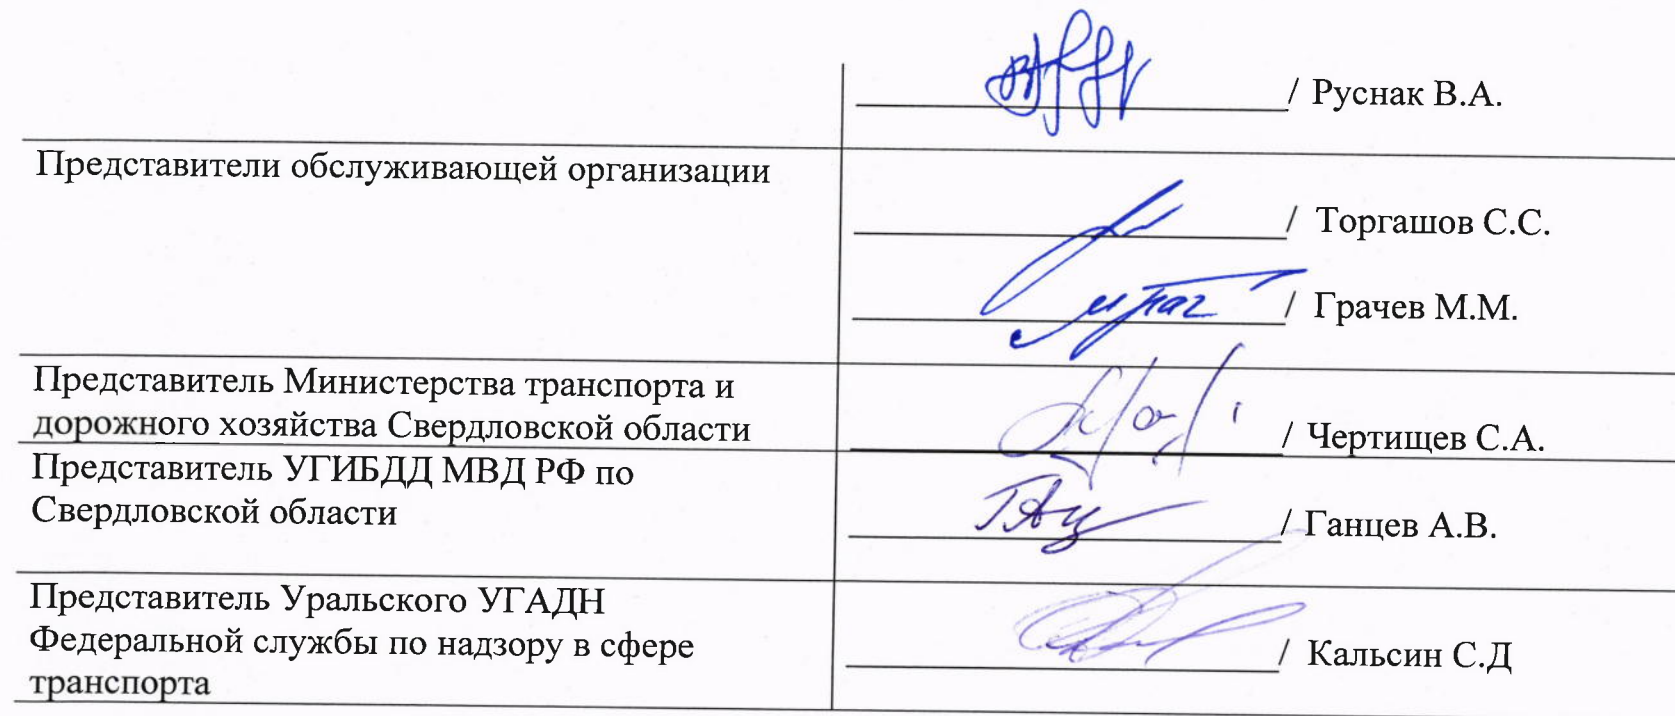 / Руснак В.А.
Представители обслуживающей организации
/ Торгашов С.С.
/ Грачев М.М.
Представитель Министерства транспорта и
дорожного хозяйства Свердловской области
/ Чертищев С.А.
Представитель УГИБДД МВД РФ по
Свердловской области
/ Ганцев А.В.
Представитель Уральского УГАДН
Федеральной службы по надзору в сфере
транспорта
/ Кальсин С.Д